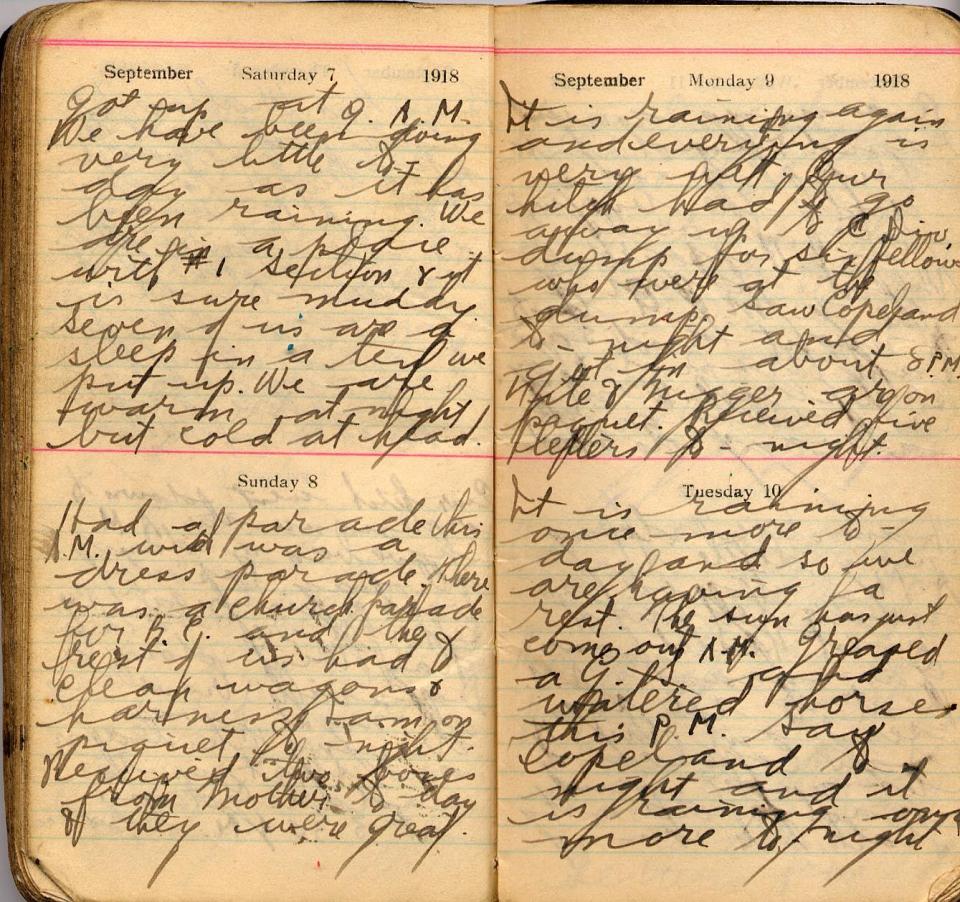 September Saturday 7 1918
Got up at 9. A.M.
We have been doing
very little to-
day as it has
been raining. We
are in a
with #1 section & it
is sure muddy
seven of us are a
sleep in a tent we
put up. We are
warm at night
but cold at head.
Sunday 8
Had a parade this
A.M. was a
dress parade. There
was a church parade
for R.C. and the
rest of us had to
clean wagons &
harness. I am on
piquet to-night.
Received two boxes
from Mother to-day
& they were great.
September Monday 9 1918
It is raining again
and everything is
very wet. Our
had to go
away up to C. Div.
dump for six fellows
who were at the
dump. Saw Copeland
to-night and
got in about 8 P.M.
& Nigger are on
piquet. Received five
letters to-night.
Tuesday 10
It is raining
once more to-
day and so we
are having a
rest. The sun has just
come out A.M. Greased
a G.S. and
watered horses
this P.M. Saw
Copeland to
night and it
is raining once
more to-night